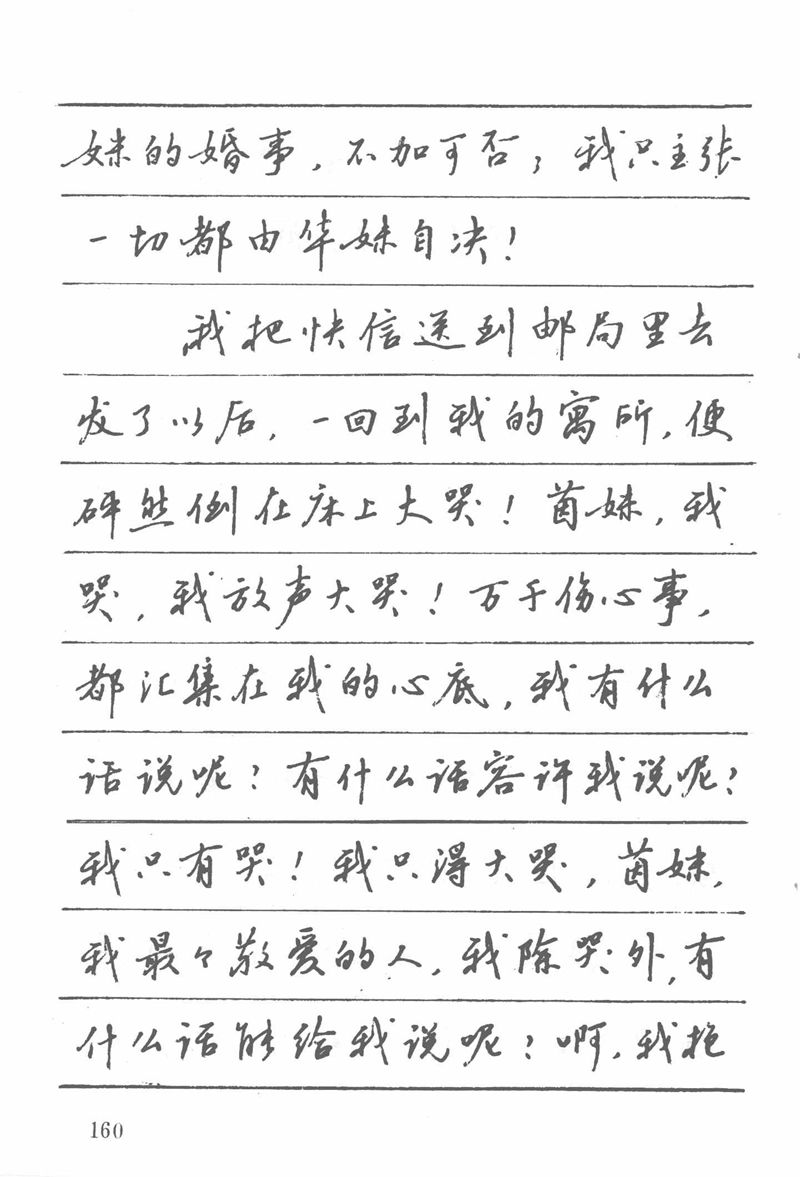 妹的婚事，不加可否；我只主张
一切都由华妹自决！
我把快信送到邮局里去
发了以后，一回到我的寓所，便
砰然倒在床上大哭！茵妹，我
哭，我放声大哭！万千伤心事，
都汇集在我的心底，我有什么
话说呢？有什么话容许我说呢？
我只有哭！我只得大哭，茵妹，
我最々敬爱的人，我除哭外，有
什么话能给我说呢？啊，我抱
160